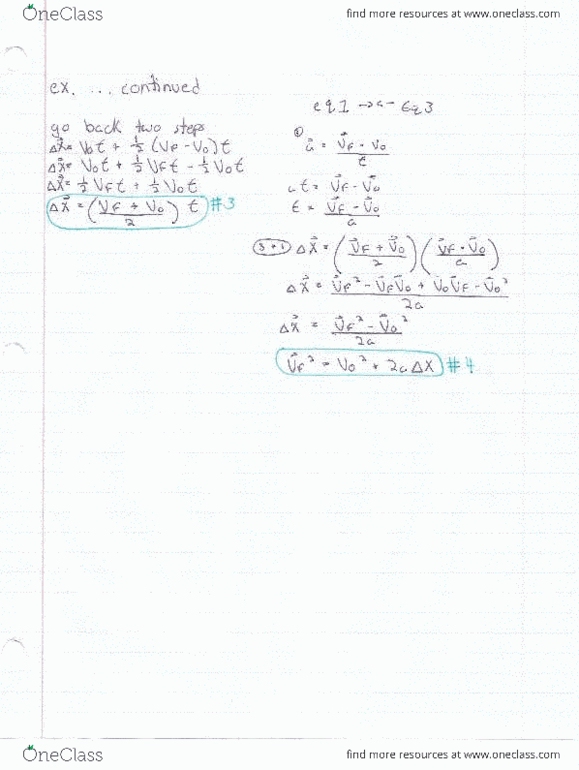 OneClass
find more resources at www.oneclass.com
ex. ... continued
go back two steps
Δx⃗ = V₀t + ½ (VF - V₀)t
Δx⃗ = V₀t + ½ VFt - ½ V₀t
Δx⃗ = ½ VFt + ½ V₀t
Δx⃗ = (VF + V₀)/2 t #3
eq1 →← Eq3
① a⃗ = (V⃗F - V₀)/t
at = V⃗F - V⃗₀
t = (V⃗F - V⃗₀)/a
3+1 Δx⃗ = ((V⃗F + V⃗₀)/2) ((V⃗F - V⃗₀)/a)
Δx⃗ = (V⃗F² - V⃗FV⃗₀ + V⃗₀V⃗F - V⃗₀²)/2a
Δx⃗ = (V⃗F² - V⃗₀²)/2a
V⃗F² = V₀² + 2aΔX #4
OneClass
find more resources at www.oneclass.com